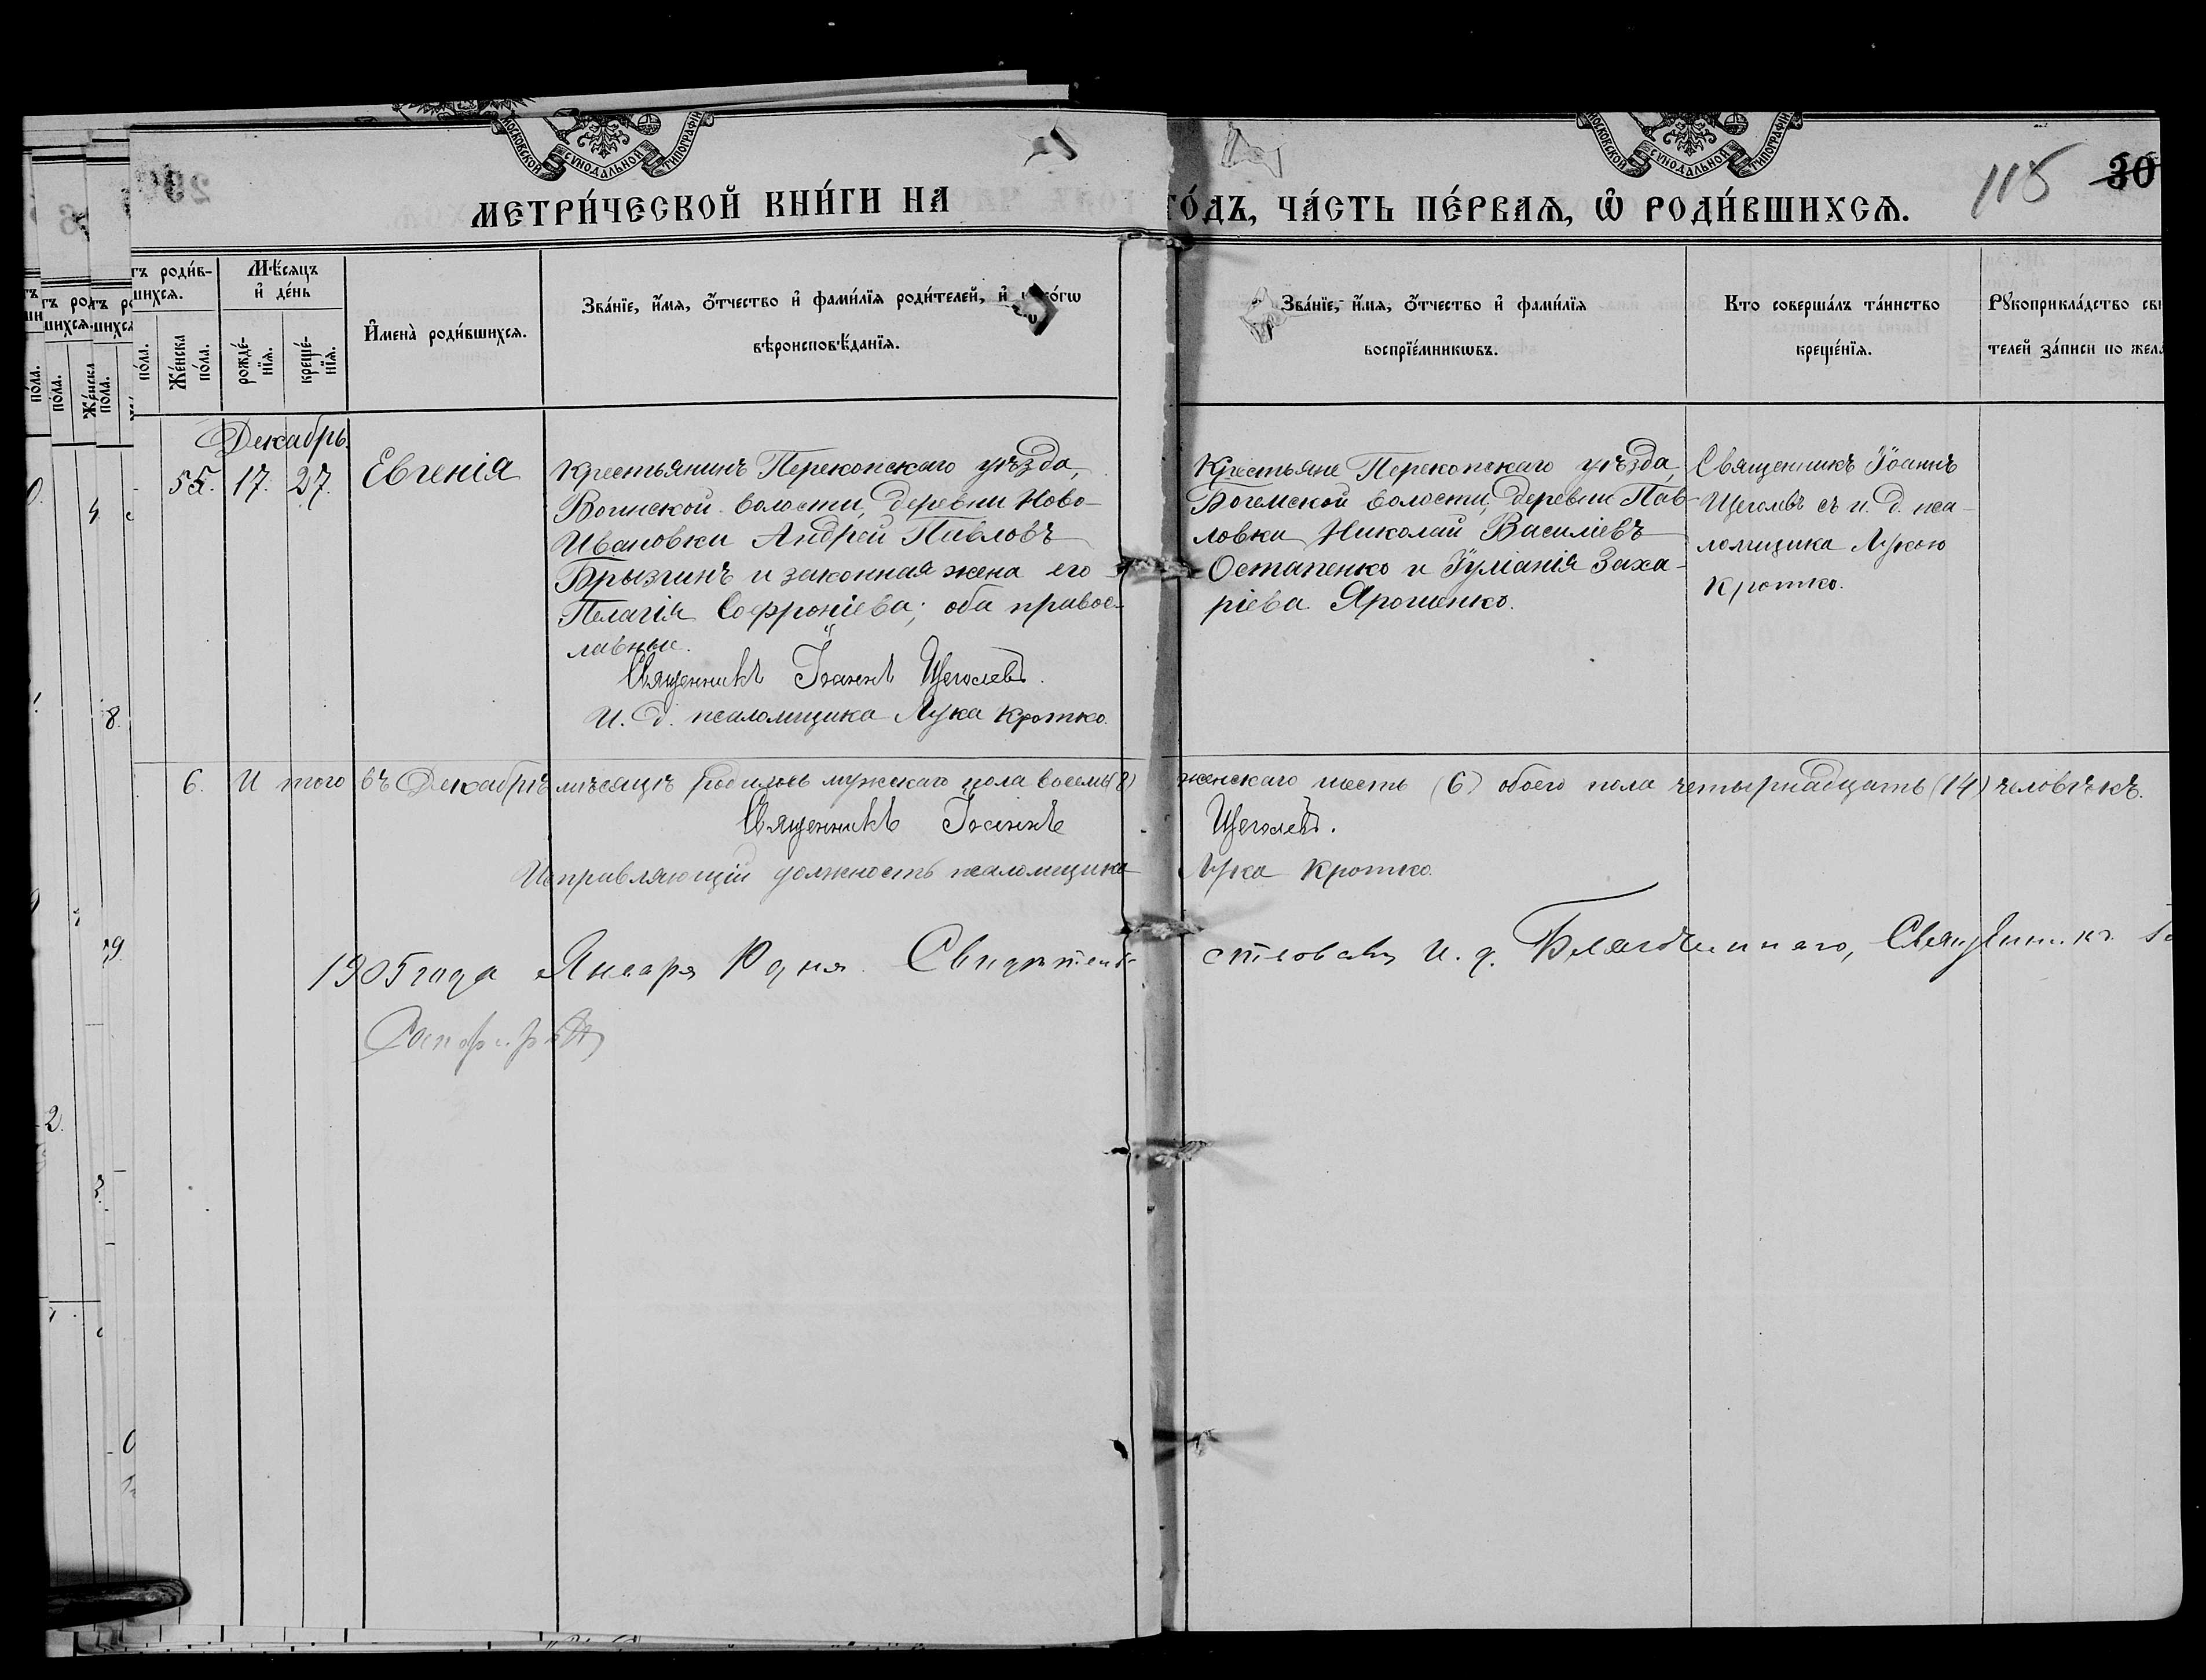 МОСКОВСКОЙ СѴНОДАЛЬНОЙ ТИПОГРАФІИ
МОСКОВСКОЙ СѴНОДАЛЬНОЙ ТИПОГРАФІИ
115 30
МЕТРИ́ЧЕСКОЙ КНИ́ГИ НА ГО́ДЪ, ЧА́СТЬ ПЕ́РВАЯ, Ѡ҆ РОДИ́ВШИХСЯ.
роди́в-
шихся.
по́ла.
Же́нска
по́ла.
Мѣ́сяцъ
и҆ де́нь
рожде́-
нїя.
креще́-
нїя.
И҆мена̀ роди́вшихся.
Зва́нїе, и҆́мя, ѻ҆́тчество и҆ фами́лїя роди́телей, и҆
вѣроисповѣ́данїя.
Зва́нїе, и҆́мя, ѻ҆́тчество и҆ фами́лїя
воспрїе́мникѡвъ.
Кто соверша́лъ та́инство
креще́нїя.
Рꙋкоприкла́дство сви
телей за́писи по жела
Декабрь.
55. 17. 27.
Евгенія
Крестьянинъ Перекопскаго уѣзда,
Воинской волости, деревни Ново-
Ивановки Андрей Павловъ
Брызгинъ и законная жена его
Пелагія Софроніева; оба правос-
лавные.
Священникъ Іоаннъ Щеголевъ.
И. д. псаломщика Лука Кротко.
Крестьяне Перекопскаго уѣзда,
Богемской волости, деревни Пав-
ловки Николай Василіевъ
Остапенко и Іуліанія Заха-
ріева Ярошенко.
Священникъ Іоаннъ
Щеголевъ съ и. д. пса-
ломщика Лукою
Кротко.
6. И того въ Декабрѣ мѣсяцѣ родилось мужскаго пола восемь (8) женскаго шесть (6) обоего пола четырнадцать (14) человѣкъ.
Священникъ Іоаннъ Щеголевъ.
Исправляющій должность псаломщика Лука Кротко.
1905 года Января дня. Свидѣтель-ствовалъ И. д. Благочиннаго, Священникъ